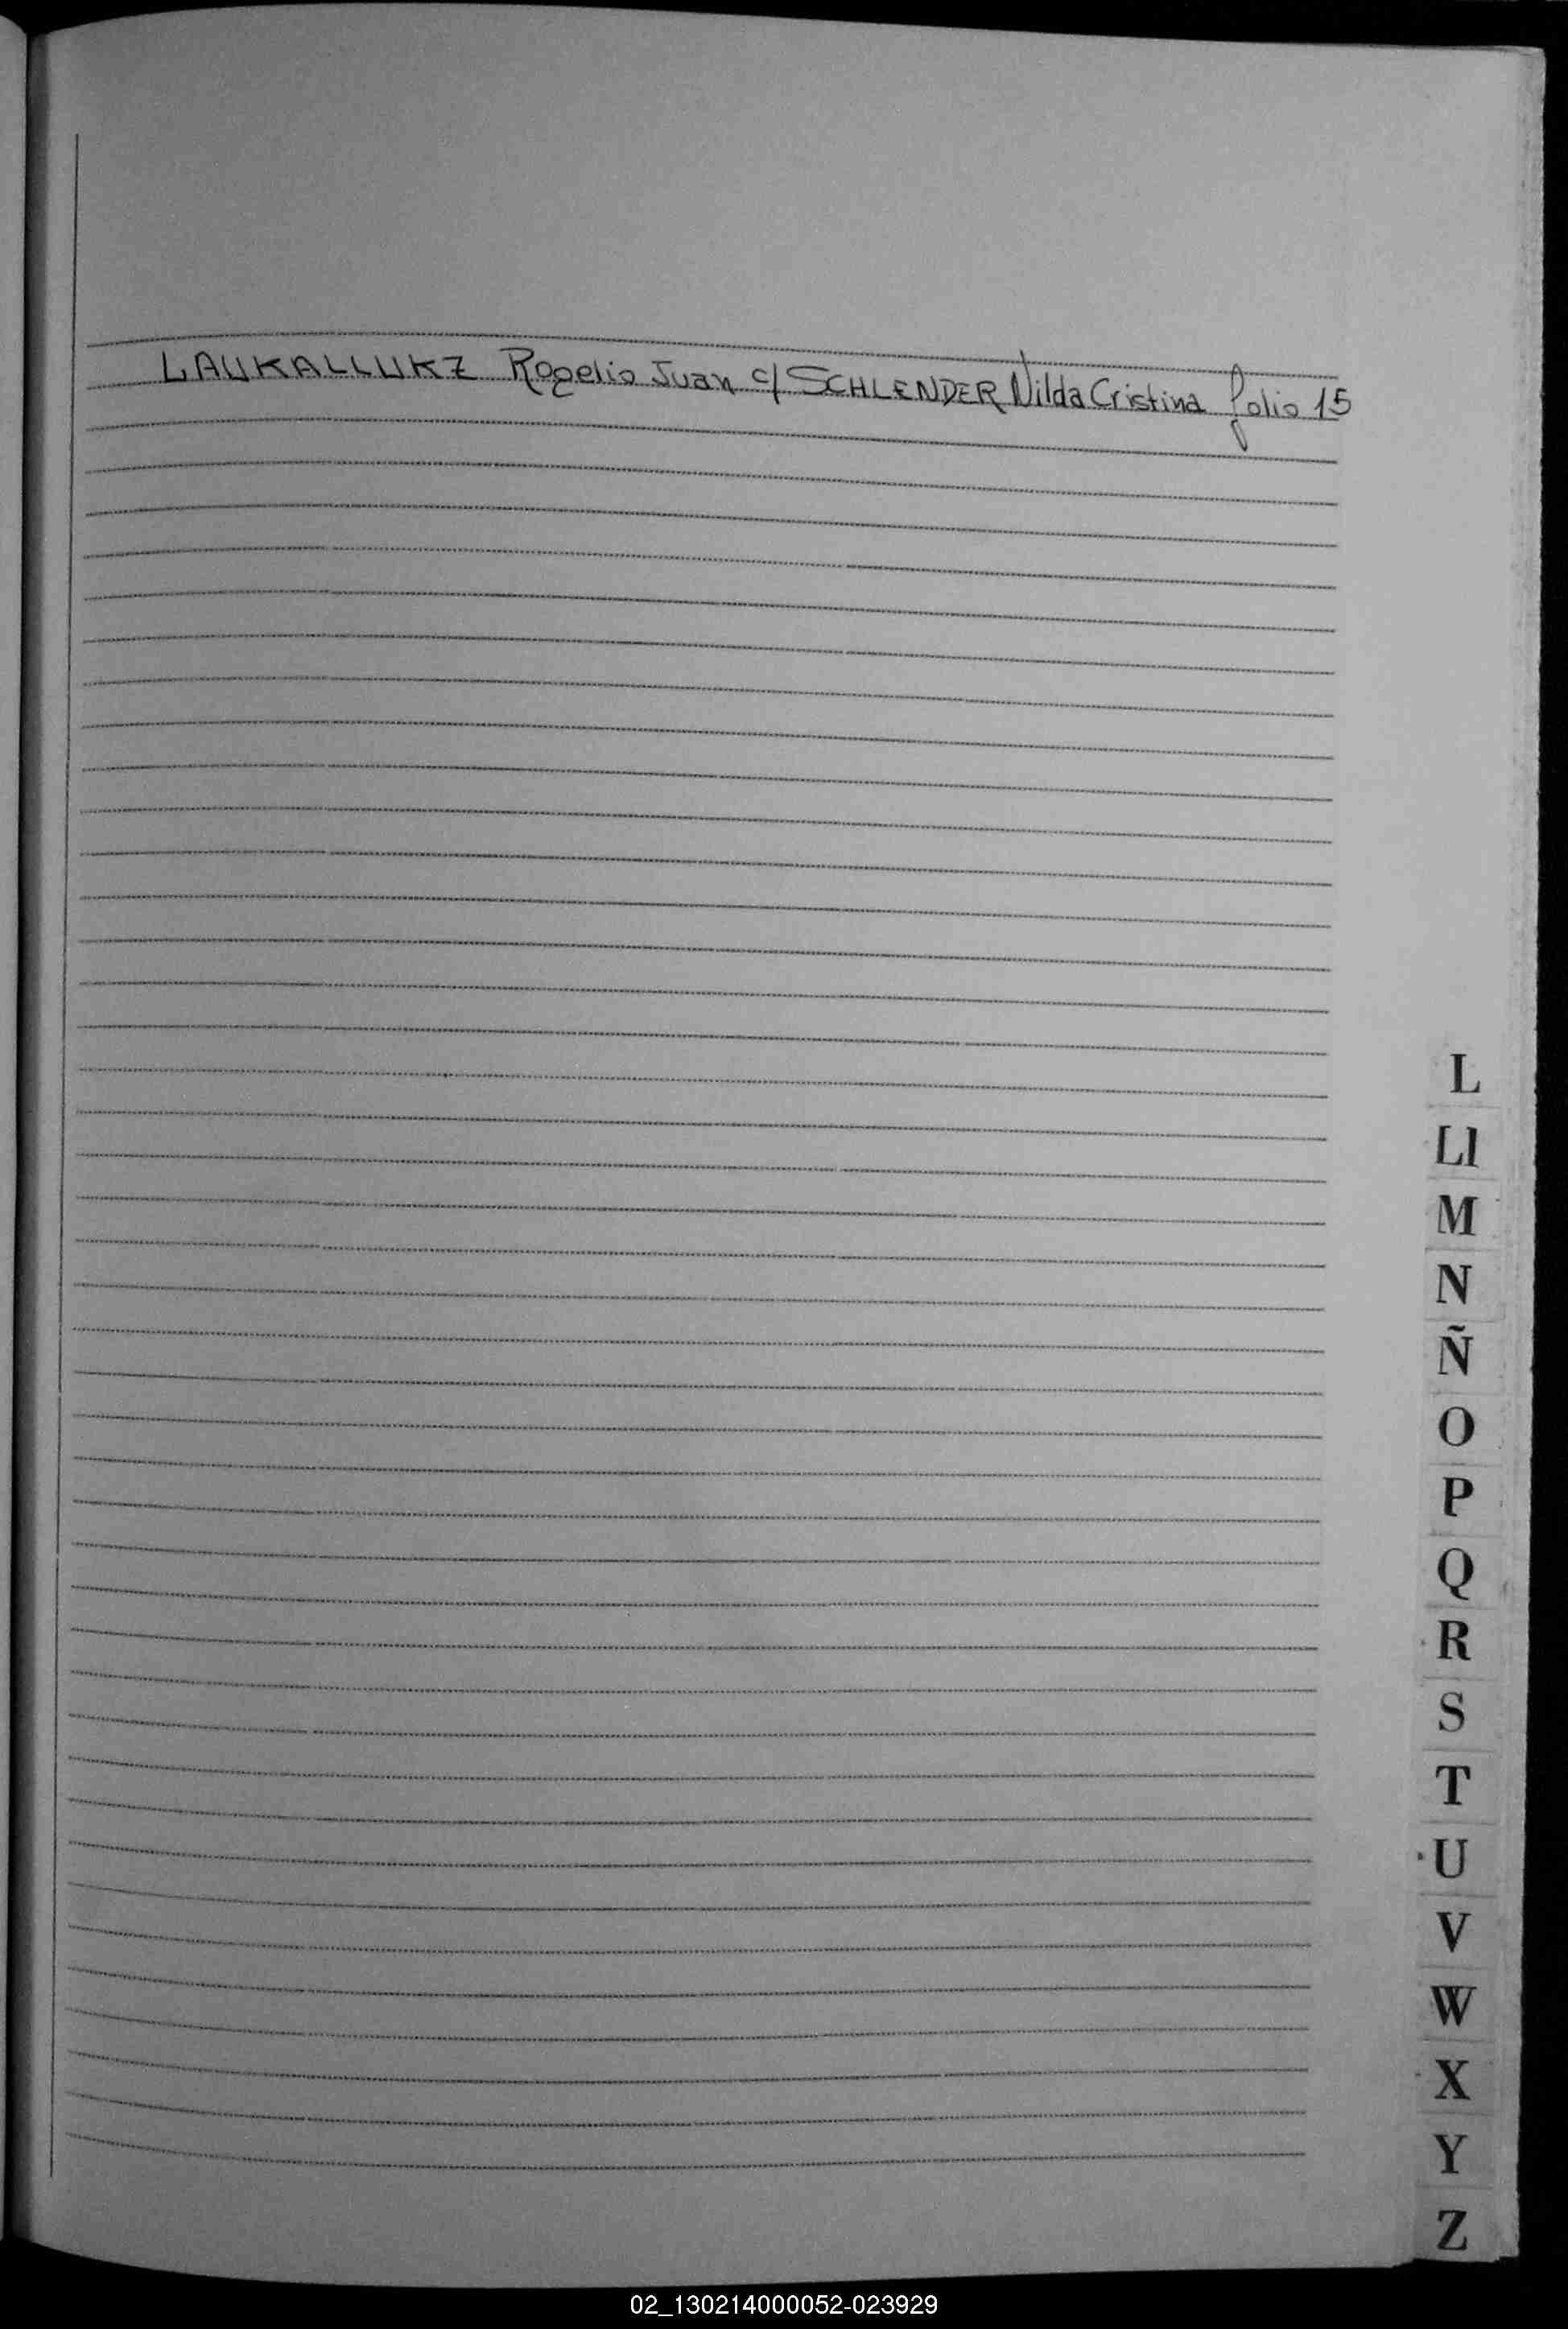 LAUKALLUKZ Rogelio Juan c/ SCHLENDER Nilda Cristina folio 15
L
Ll
M
N
Ñ
O
P
Q
R
S
T
U
V
W
X
Y
Z
02_130214000052-023929